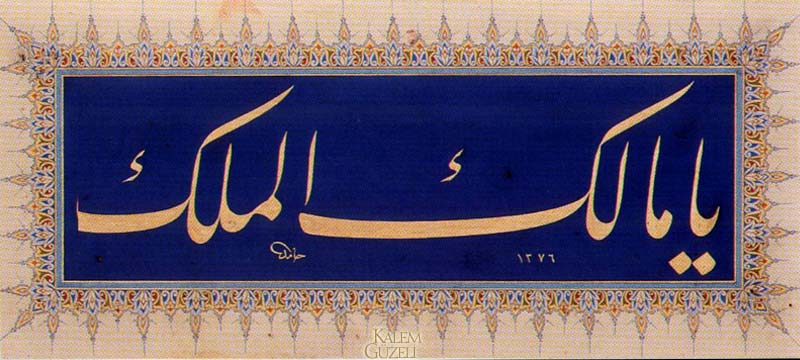 يا مالك الملك
حامد ١٣٧٦
KALEM
GÜZELİ